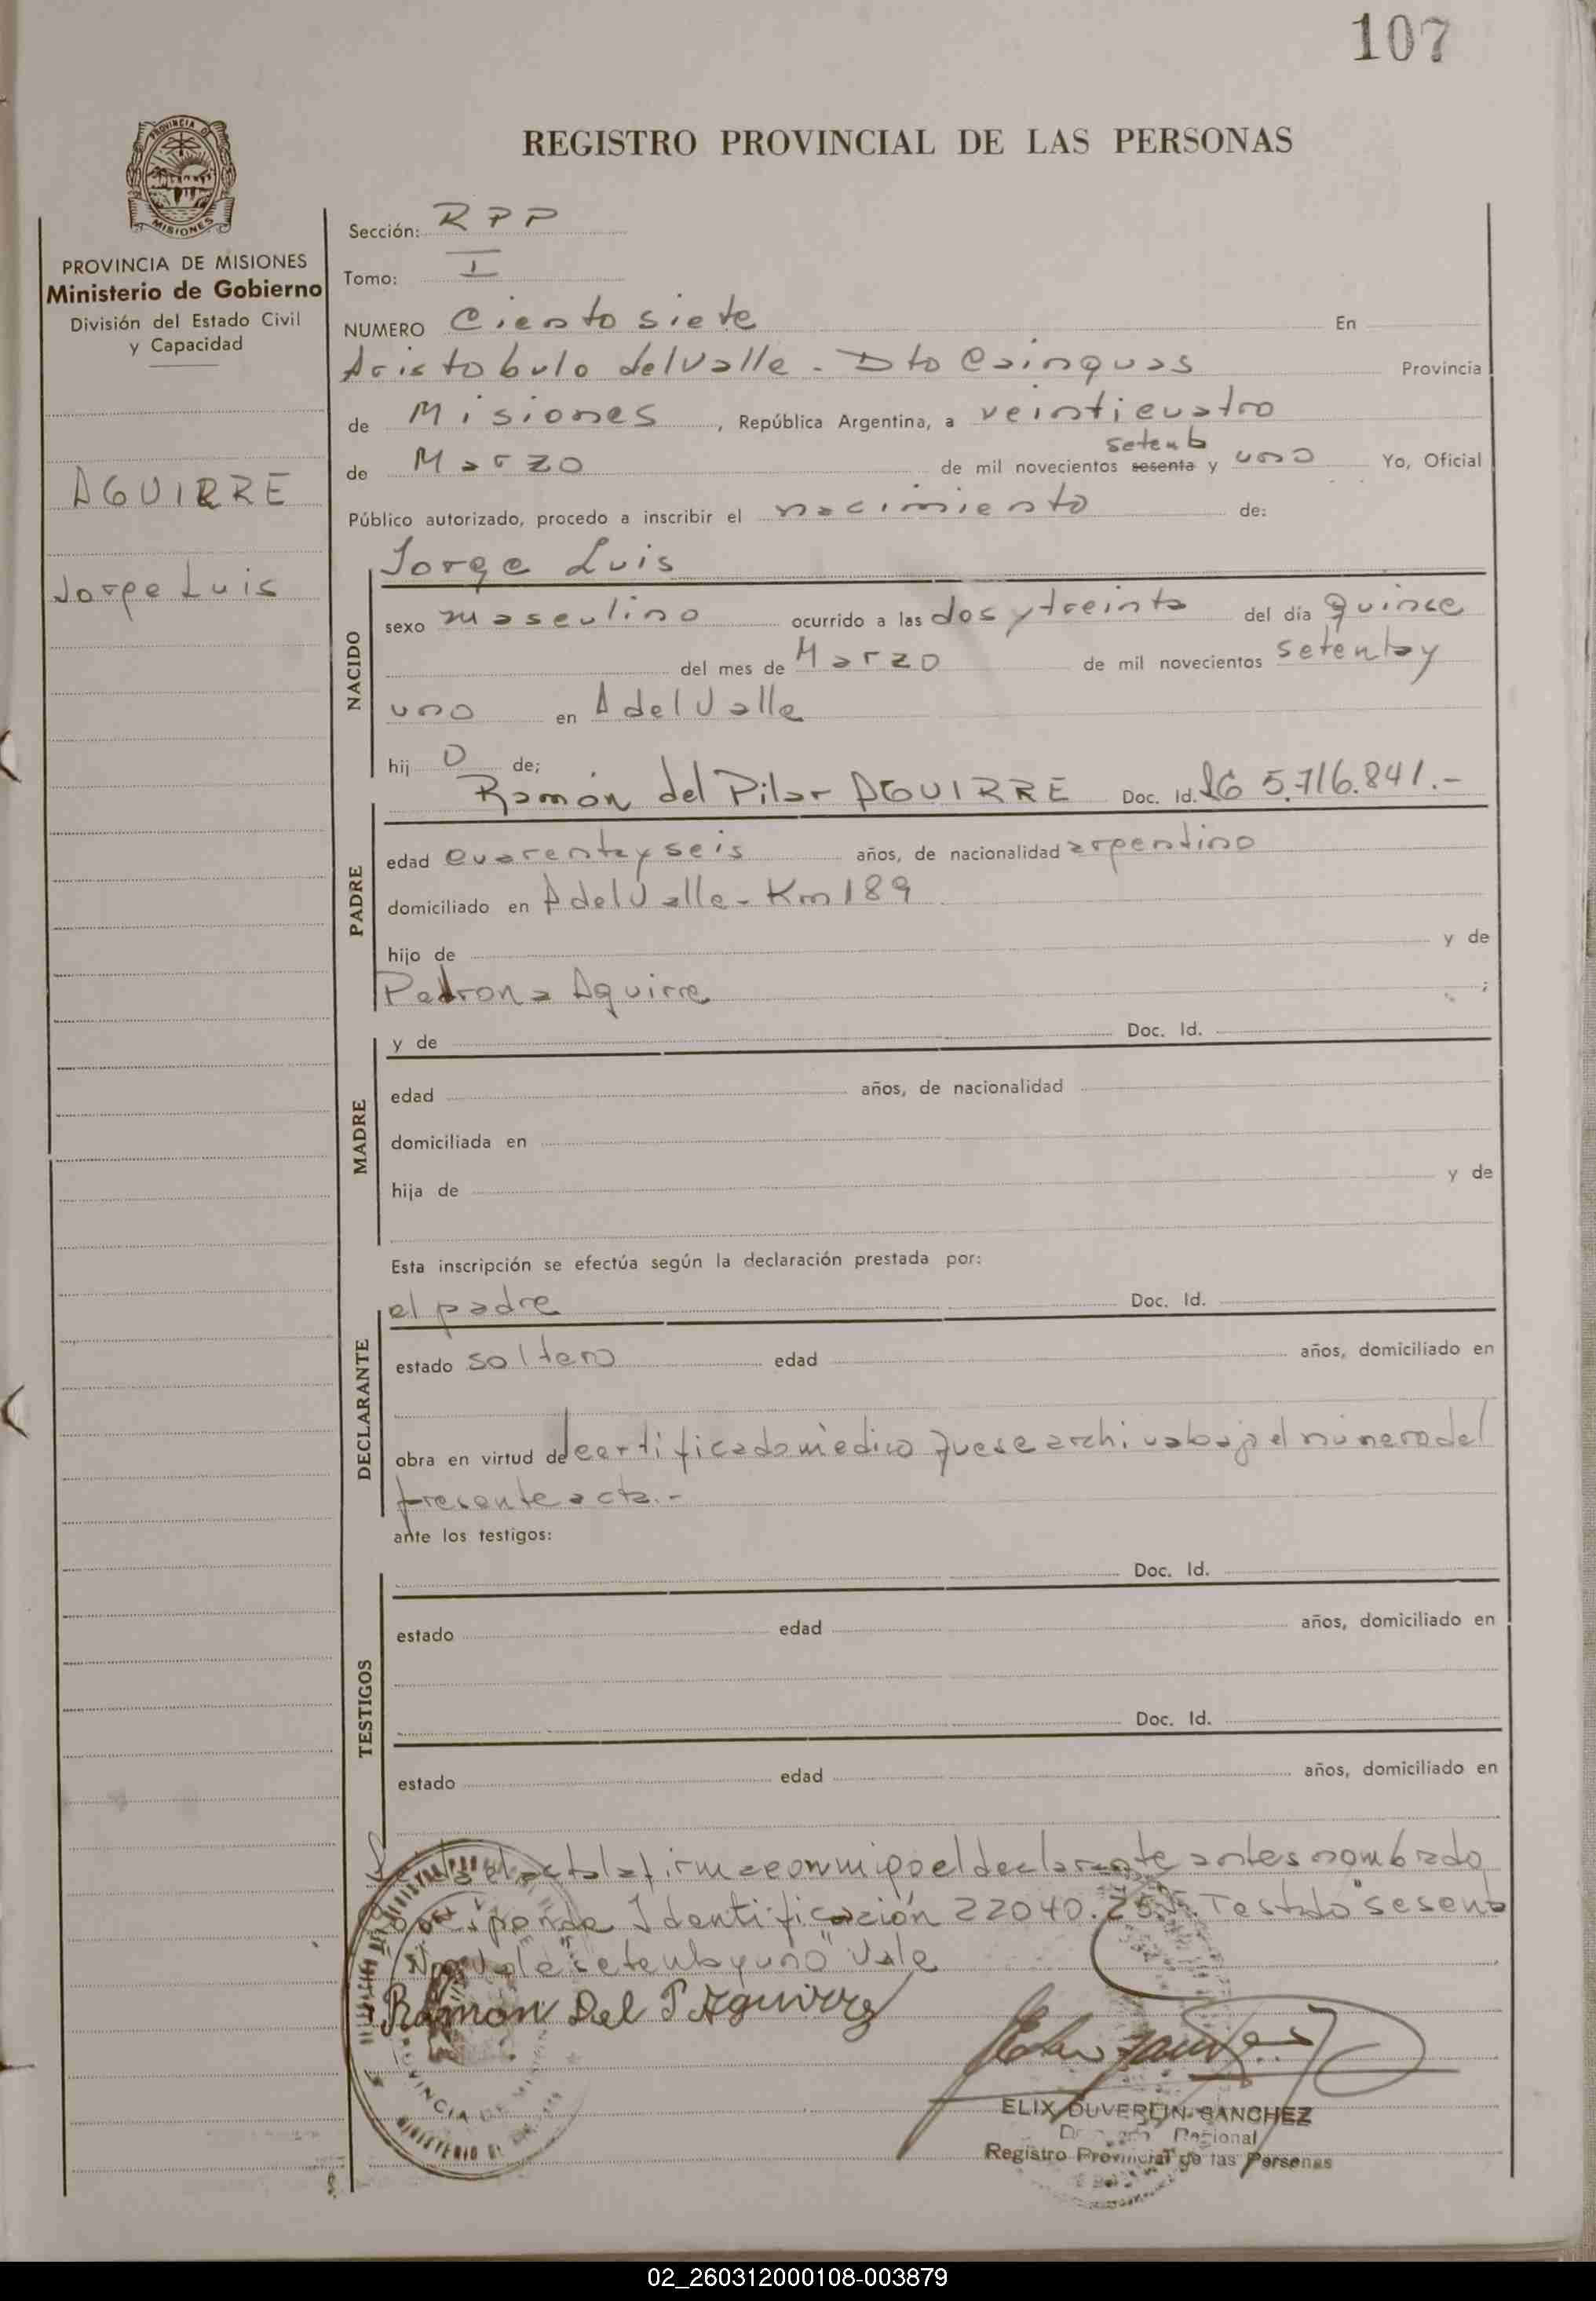 107
PROVINCIA DE MISIONES
REGISTRO PROVINCIAL DE LAS PERSONAS
PROVINCIA DE MISIONES
Ministerio de Gobierno
División del Estado Civil
y Capacidad
AGUIRRE
Jorge Luis
Sección: RPP
Tomo: I
NUMERO Ciento siete En
Aristobulo del Valle - Dto Cainguas Provincia
de Misiones, República Argentina, a veinticuatro
setenta
de Marzo de mil novecientos sesenta y uno Yo, Oficial
Público autorizado, procedo a inscribir el nacimiento de:
NACIDO
Jorge Luis
sexo masculino ocurrido a las dos y treinta del día quince
del mes de Marzo de mil novecientos setenta y
uno en A del Valle
hij o de;
PADRE
Ramón del Pilar AGUIRRE Doc. Id. 5.716.841.-
edad cuarenta y seis años, de nacionalidad argentino
domiciliado en A del Valle - Km 189
hijo de y de
Petrona Aguirre ;
MADRE
y de Doc. Id.
edad años, de nacionalidad
domiciliada en
hija de y de
Esta inscripción se efectúa según la declaración prestada por:
DECLARANTE
el padre Doc. Id.
estado soltero edad años, domiciliado en
obra en virtud de certificado médico que se archiva bajo el número del
presente acta.-
ante los testigos:
TESTIGOS
Doc. Id.
estado edad años, domiciliado en
Doc. Id.
estado edad años, domiciliado en
Leída el acta la firma conmigo el declarante antes nombrado
Corresponde Identificación 22040. Testado "sesenta
No vale setenta y uno" Vale
Ramón Del P Aguirre
ELIX DUVERLIN SANCHEZ
Regional
Registro Provincial de las Personas
02_260312000108-003879